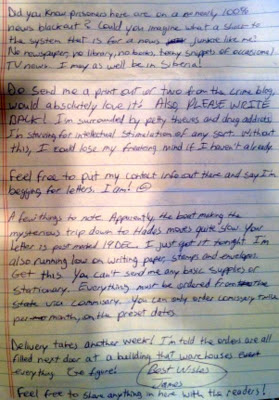 Did you know prisoners here are on a nearly 100%
news blackout? Could you imagine what a shock to
the system that is for a news junkie like me?
No newspaper, no library, no books, teeny snippets of occasional
TV news. I may as well be in Siberia!
Do send me a print out or two from the crime blog,
would absolutely love it! Also, PLEASE WRITE
BACK! I'm surrounded by petty thieves and drug addicts.
I'm starving for intellectual stimulation of any sort. Without
this, I could lose my freaking mind if I haven't already.
Feel free to put my contact info out there and say I'm
begging for letters. I am! ☺
A few things to note. Apparently, the boat making the
mysterious trip down to Hades moves quite slow. Your
letter is post marked 19 DEC. I just got it tonight. I'm
also running low on writing paper, stamps and envelopes.
Get this. You can't send me any basic supplies or
stationary. Everything must be ordered from the
state via commisary. You can only order commisary twice
per month, on the preset dates.
Delivery takes another week! I'm told the orders are all
filled next door at a building that warehouses
everything. Go figure!
Best Wishes
James
Feel free to share anything in here with the readers!